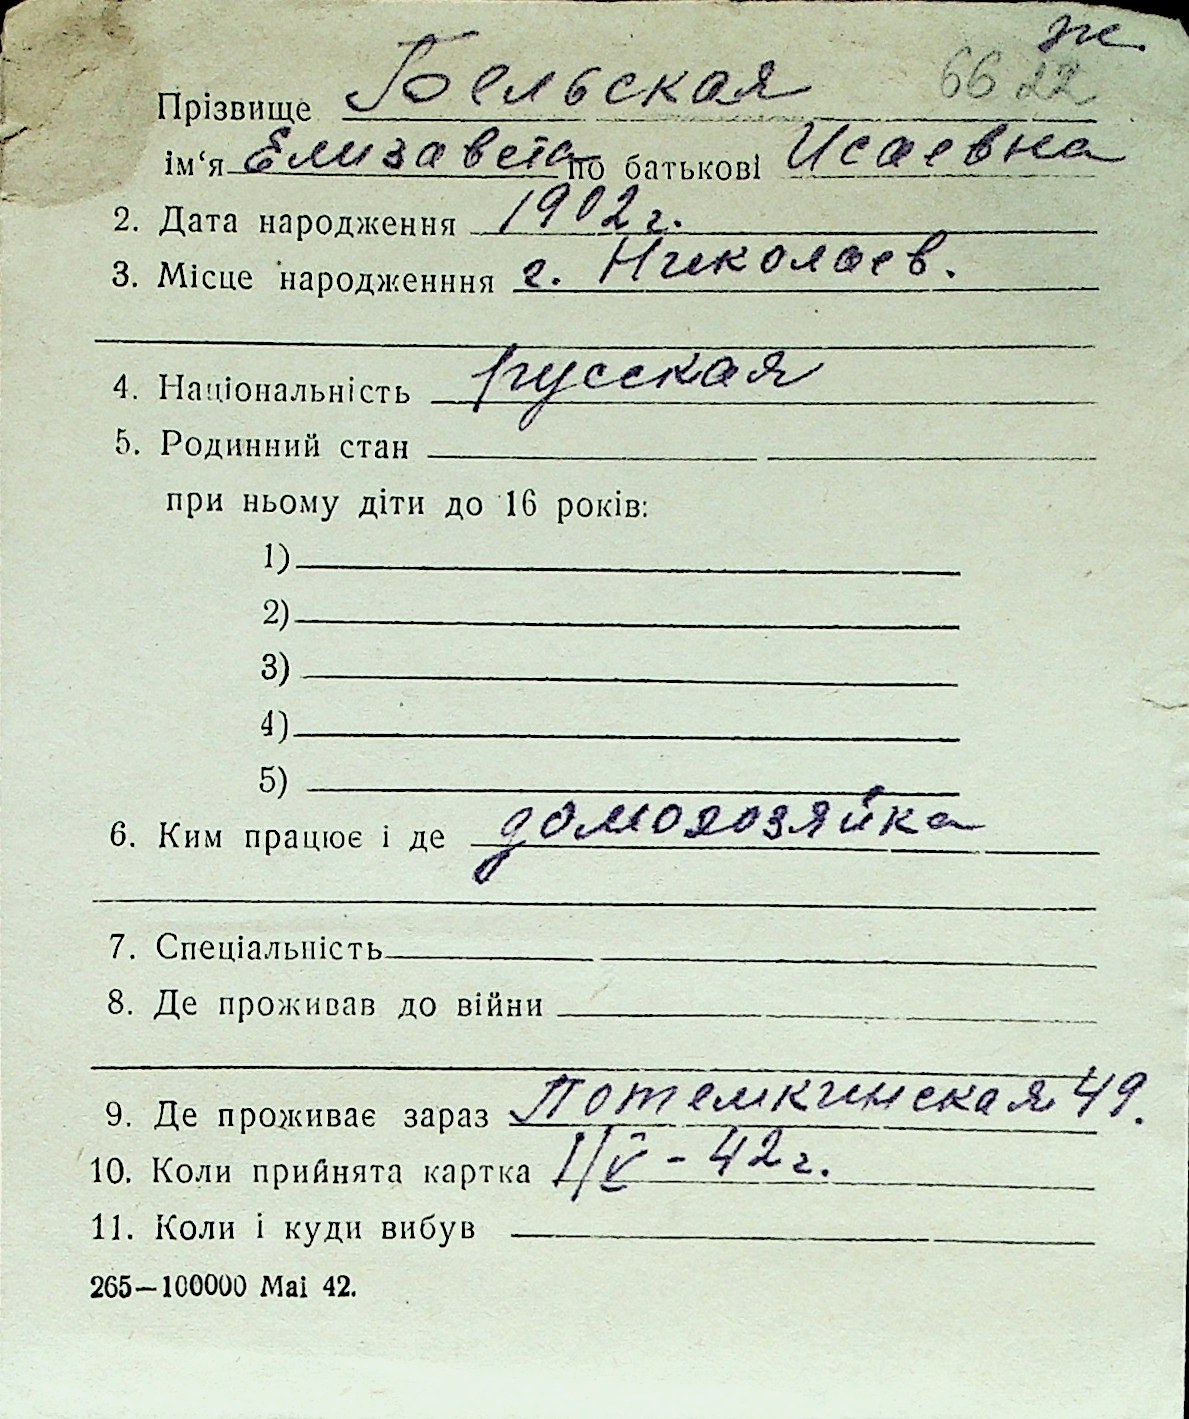 ж.
66 22
Прізвище Бельская
ім‘я Елизавета по батькові Исаевна
2. Дата народження 1902 г.
3. Місце народженння г. Николаев.
4. Національність русская
5. Родинний стан
при ньому діти до 16 років:
1)
2)
3)
4)
5)
6. Ким працює і де домохозяйка
7. Спеціальність
8. Де проживав до війни
9. Де проживає зараз Потемкинская 49.
10. Коли прийнята картка 1/V - 42 г.
11. Коли і куди вибув
265—100000 Mai 42.